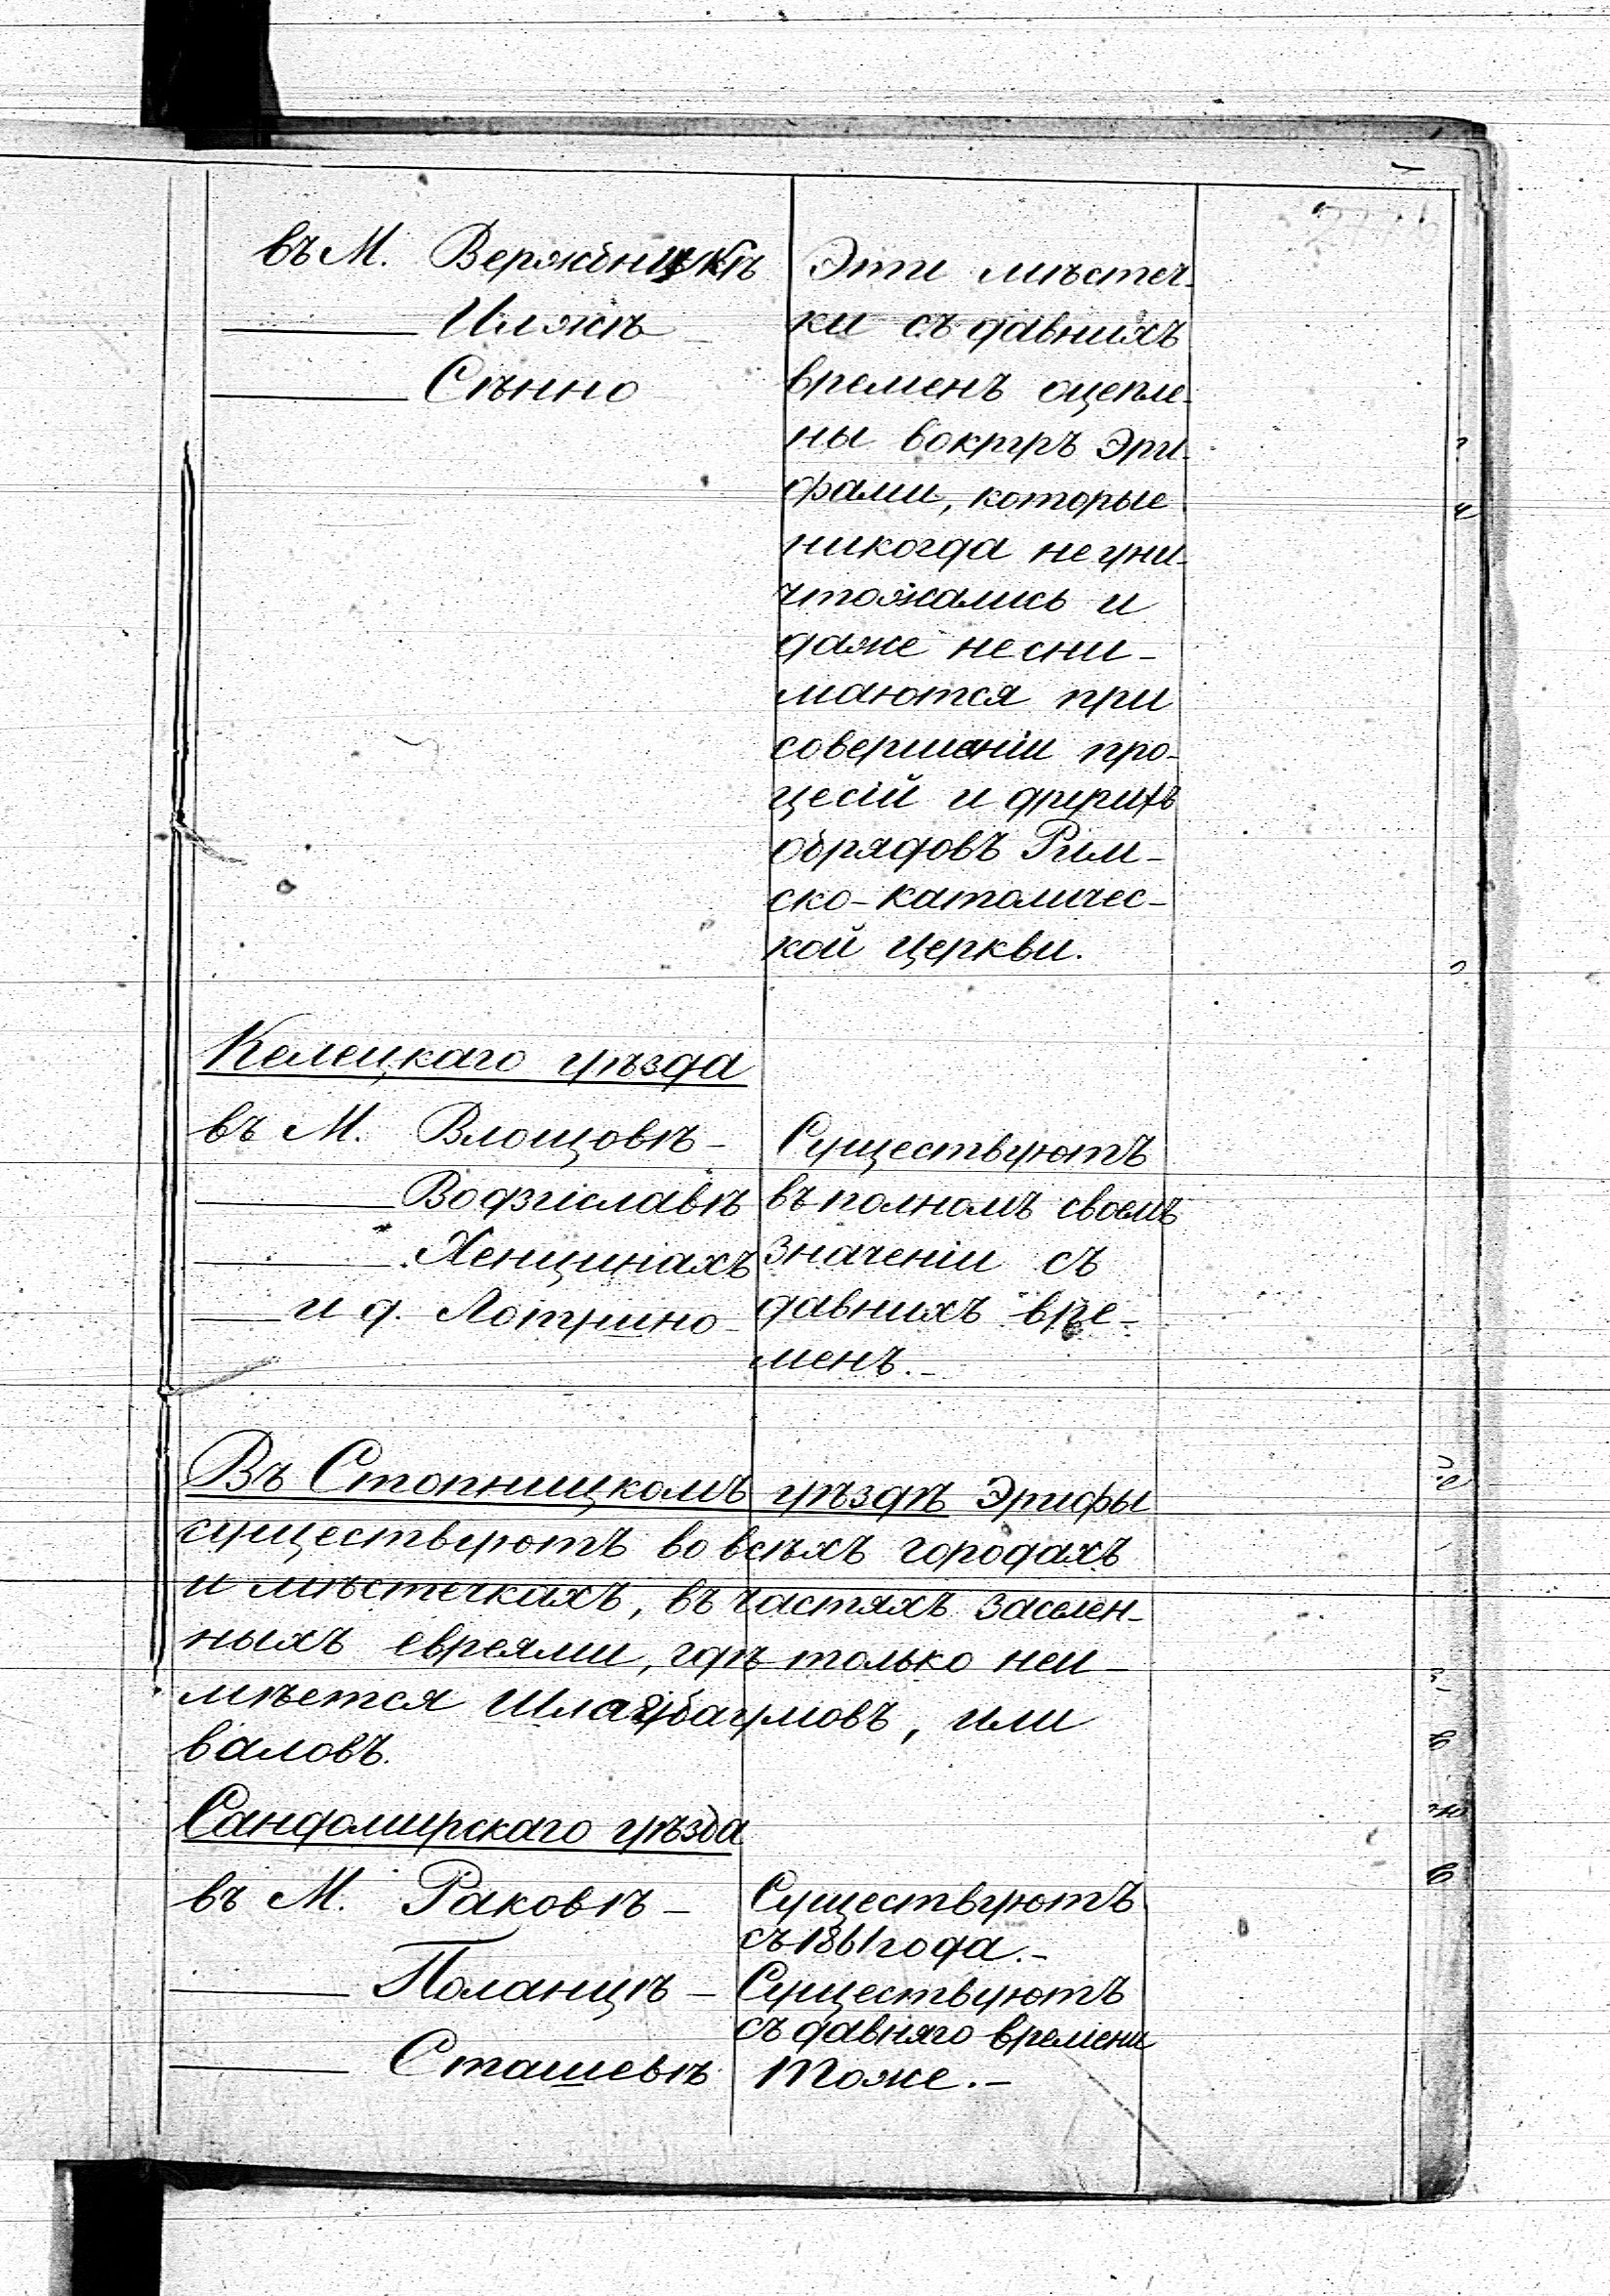 въ М. Вержбницкѣ
Илжѣ
Сѣнно
Эти мѣстеч-
ки съ давнихъ
временъ оцепле-
ны вокругъ Эру-
фами, которые
никогда не уни-
чтожались и
даже не сни-
маются при
совершеніи про-
цесій и другихъ
обрядовъ Рим-
ско-католичес-
кой церкви.
Келецкаго уѣзда
въ М. Влощовѣ-
Водзиславѣ
Хенцинахъ
и д. Лотушно-
Существуютъ
въ полномъ своемъ
значеніи съ
давнихъ вре-
менъ.-
Въ Стопницкомъ уѣздѣ Эруфы
существуютъ во всѣхъ городахъ
и мѣстечкахъ, въ частяхъ заселен-
ныхъ евреями, гдѣ только неи-
мѣется Шлагбаумовъ, или
валовъ.
Сандомирскаго уѣзда
въ М. Раковѣ-
Существуютъ
съ 1861 года.-
Поланцѣ-
Существуютъ
съ давняго времени
Сташевѣ
Тоже.-